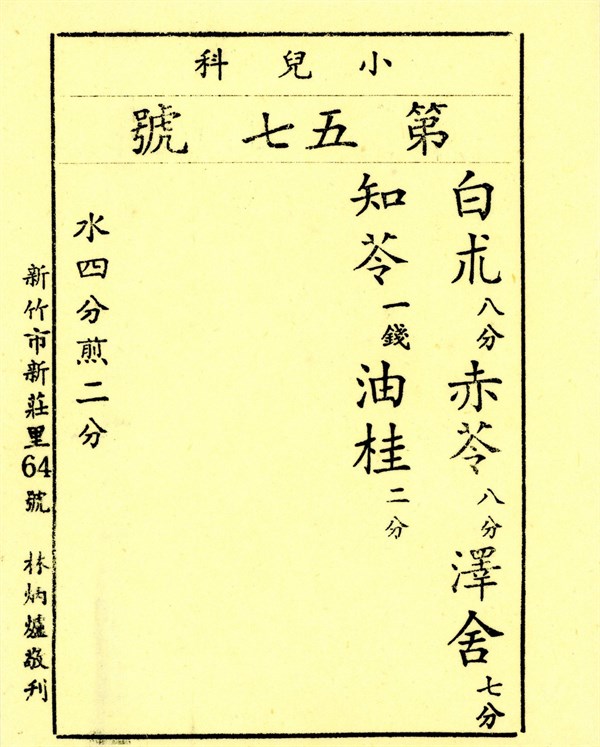 小兒科
第五七號
白朮八分赤苓八分澤舍七分
知苓一錢油桂二分
水四分煎二分
新竹市新莊里64號 林炳爐敬刊